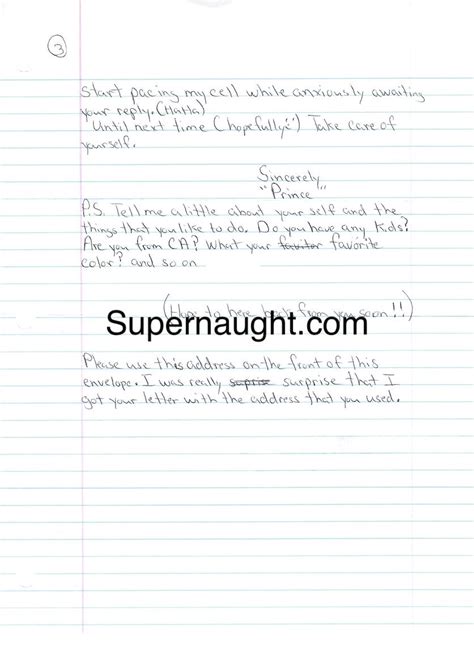 3
Start pacing my cell while anxiously awaiting
your reply. (HaHa)
Until next time (hopefully :') Take care of
yourself.
Sincerely,
"Prince"
P.S. Tell me a little about your self and the
things that you like to do. Do you have any kids?
Are you from CA? What your favitor favorite
color? and so on
(Hope to here back from you soon!!)
Supernaught.com
Please use this address on the front of this
envelope. I was really suprise surprise that I
got your letter with the address that you used.